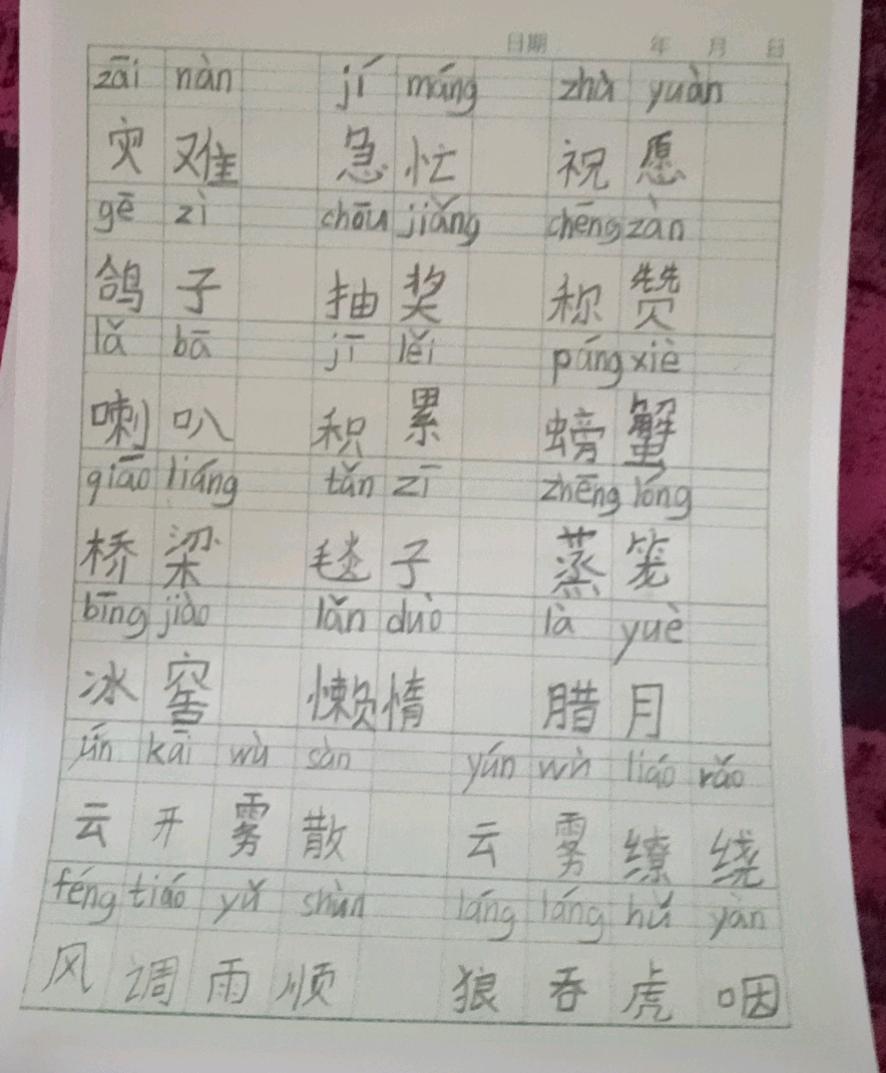 日期 年 月 日
zāi nàn jí máng zhù yuàn
灾难 急忙 祝愿
gē zi chōu jiǎng chēng zàn
鸽子 抽奖 称赞
lǎ bā jī lěi páng xiè
喇叭 积累 螃蟹
qiāo liáng tǎn zī zhēng lóng
桥梁 毯子 蒸笼
bīng jiào lǎn duò là yuè
冰窖 懒惰 腊月
yún kāi wù sàn yún wù liáo rǎo
云开雾散 云雾缭绕
féng tiáo yǔ shùn láng láng hǔ yàn
风调雨顺 狼吞虎咽